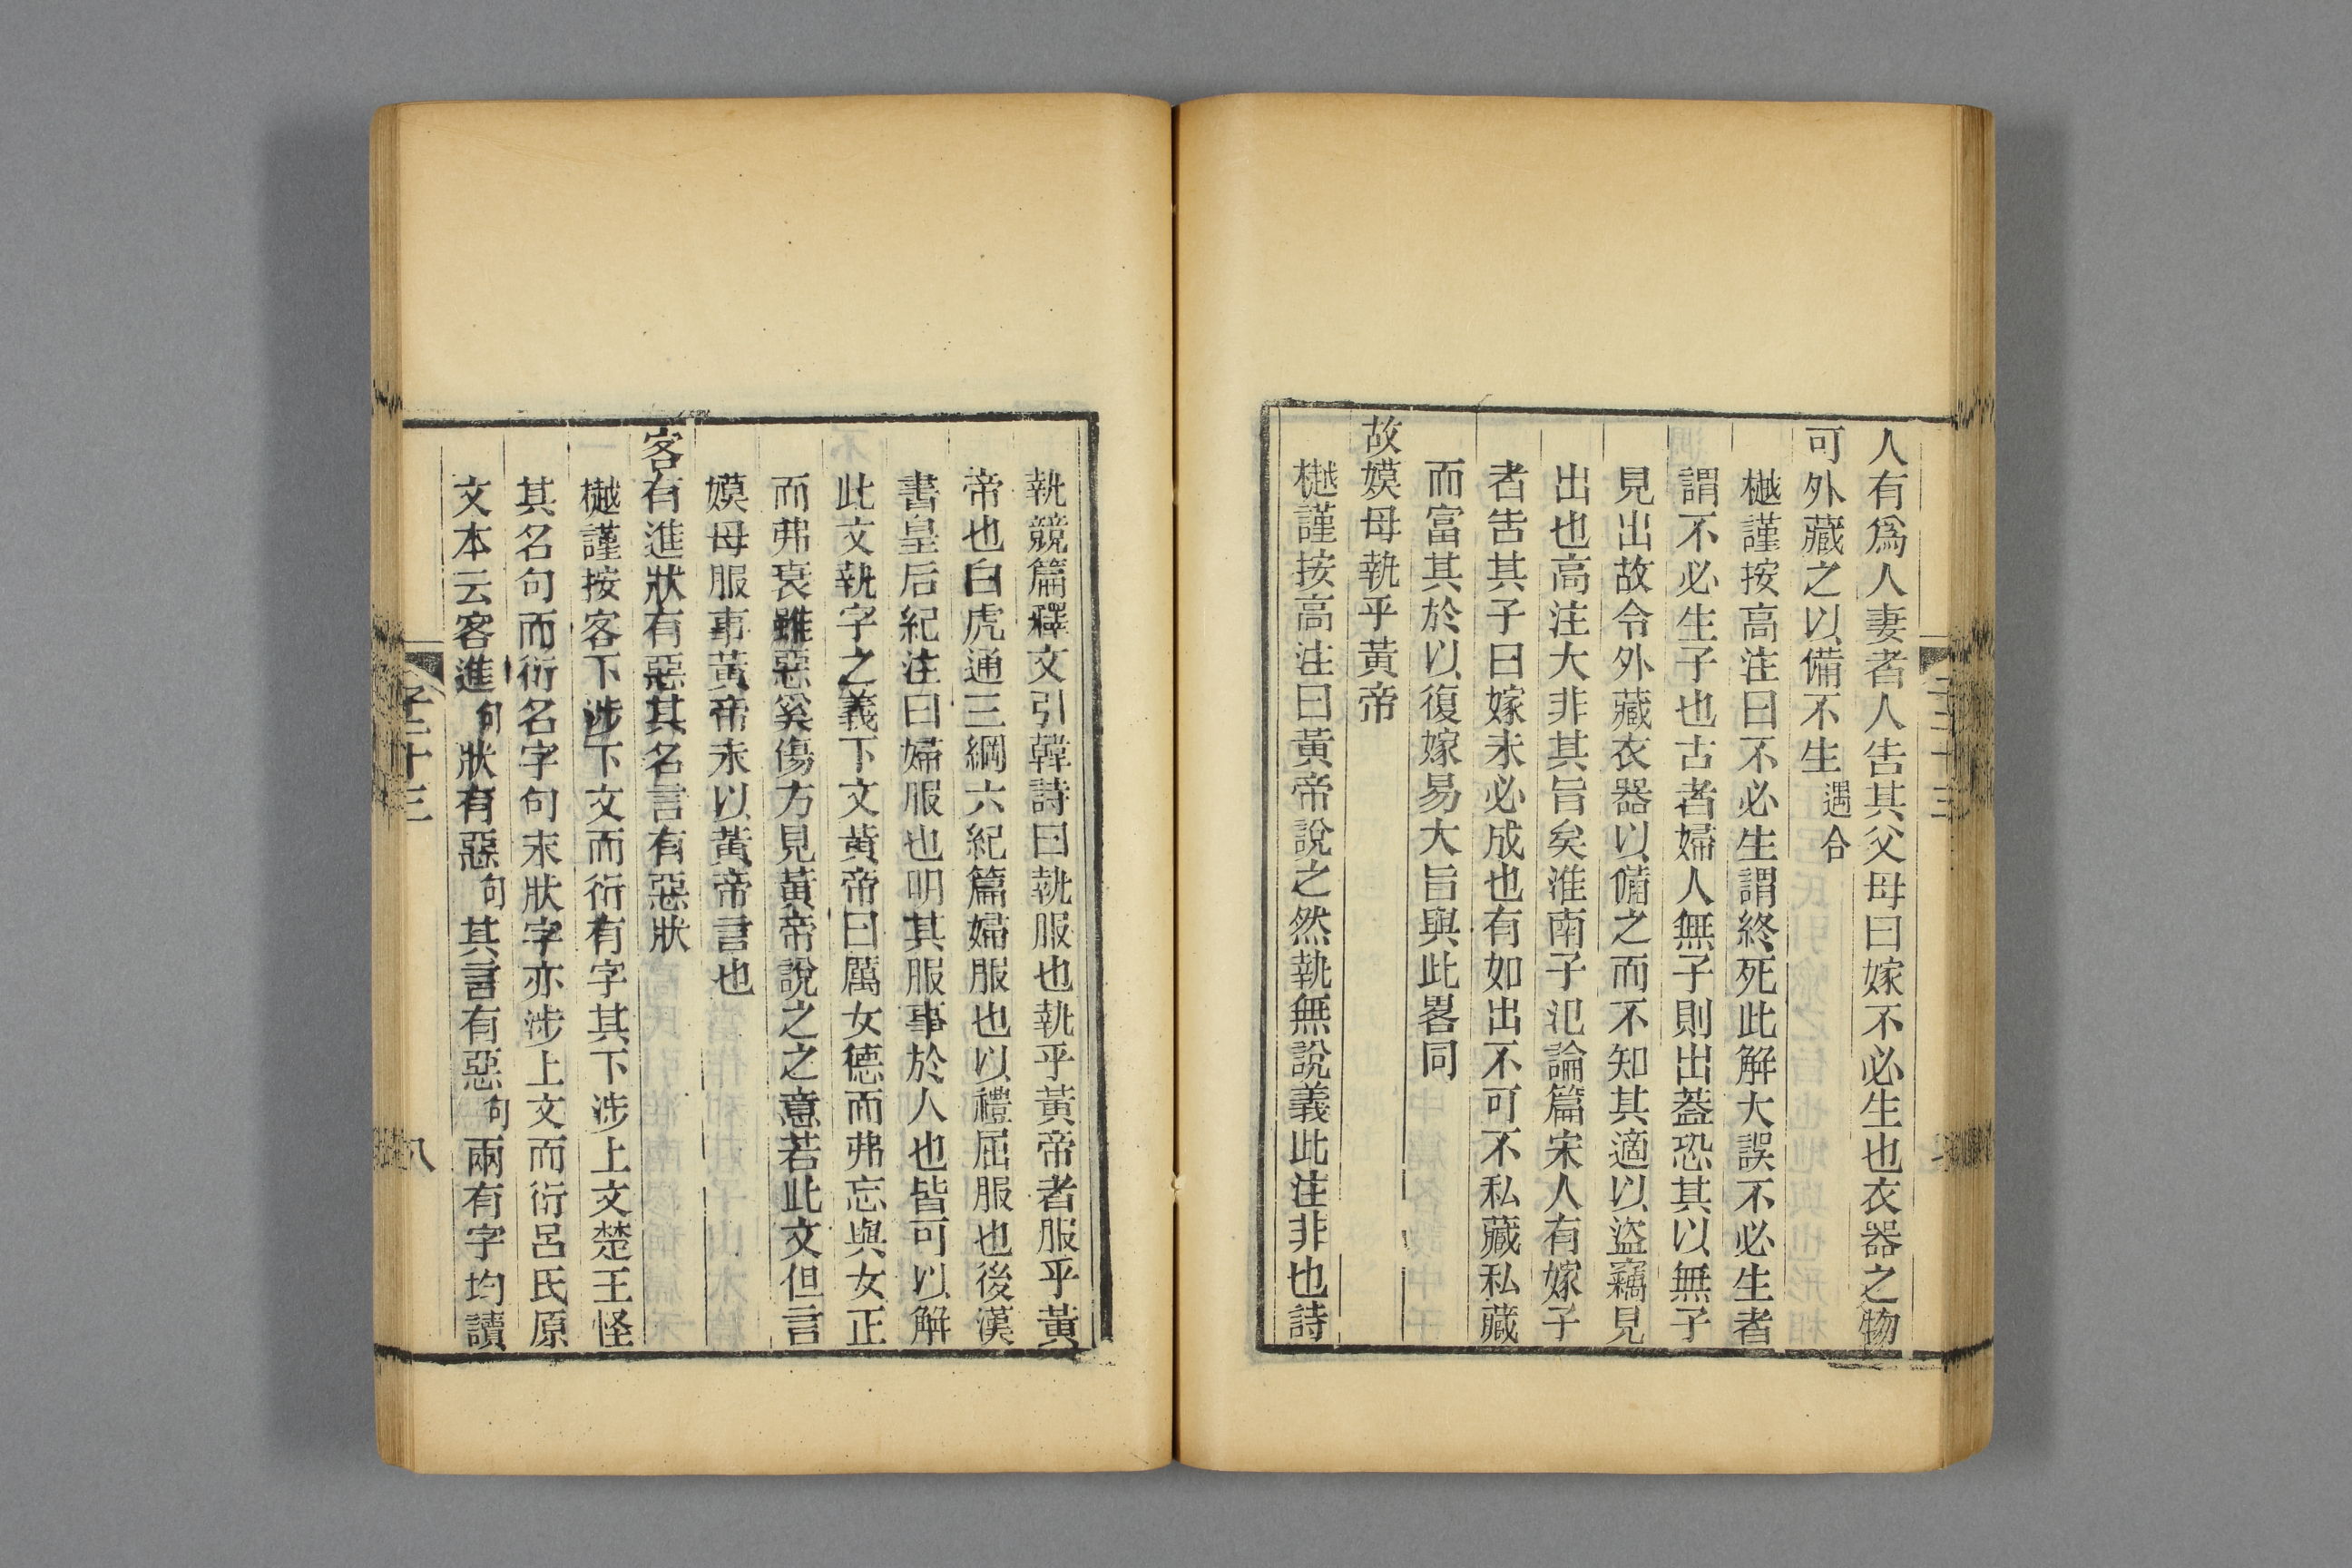 人有爲人妻者人告其父母曰嫁不必生也衣器之物
可外藏之以備不生遇合
樾謹按高注曰不必生謂終死此解大誤不必生者
謂不必生子也古者婦人無子則出蓋恐其以無子
見出故令外藏衣器以備之而不知其適以盜竊見
出也高注大非其旨矣淮南子氾論篇宋人有嫁子
者告其子曰嫁未必成也有如出不可不私藏私藏
而富其於以復嫁易大旨與此畧同
故嫫母執乎黃帝
樾謹按高注曰黃帝說之然執無說義此注非也詩
執競篇釋文引韓詩曰執服也執乎黃帝者服乎黃
帝也白虎通三綱六紀篇婦服也以禮屈服也後漢
書皇后紀注曰婦服也明其服事於人也皆可以解
此文執字之義下文黃帝曰厲女德而弗忘與女正
而弗衰雖惡奚傷方見黃帝說之之意若此文但言
嫫母服事黃帝未以黃帝言也
客有進狀有惡其名言有惡狀
樾謹按客下涉下文而衍有字其下涉上文楚王怪
其名句而衍名字句末狀字亦涉上文而衍呂氏原
文本云客進句狀有惡句其言有惡句兩有字均讀
子二十三
八